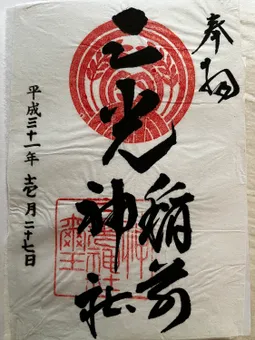 奉拝
三光稲荷
神社
平成三十一年壱月二十七日